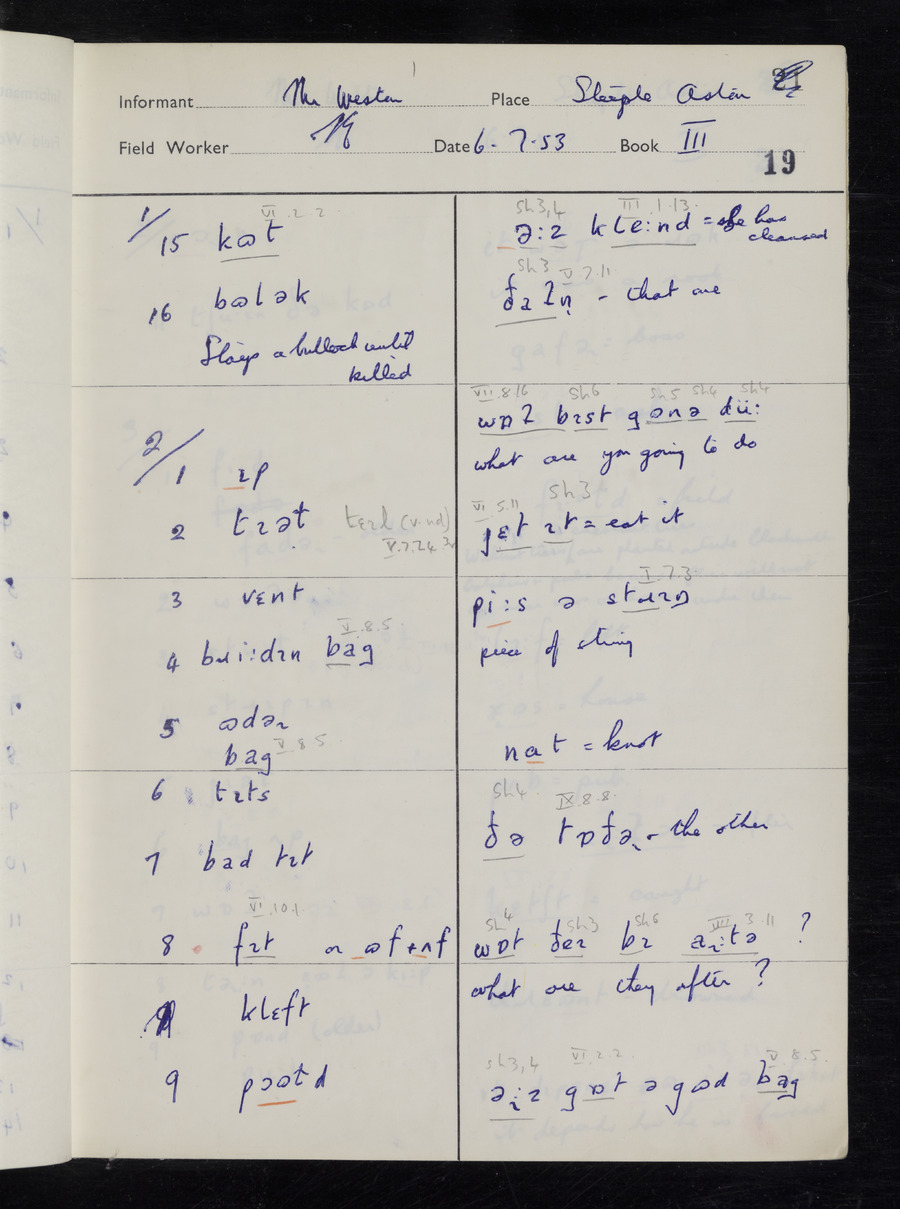 Informant Mr Weston Place Steeple Aston
Field Worker Date 6 - 7 - 53 Book III
19
1/
VI.2.2.
15 kɷt
16 bɷlək
Stays a bullock until
killed
2/
1 ɪp
2 tɪət tɛɪl (v. nd)
V.7.24
3 vɛnt
V.8.5
4 bag
5 ɷdəɹ
bag V.8.5
6 tɪts
7 bad tɪt
VI.10.1
8 fɪt or
klɛft
9 pɔɷtd
Sh3,4 III.1.13.
əːz klɛːnd = she has
cleansed
Sh3 V.7.11
ðaʔn̩ - that are
VII.8.16 Sh6 Sh5 Sh4 Sh4
wɒʔ bɪst gɷnə düː
what are you going to do
VI.5.11 Sh3
jɛt ɪt = eat it
I.7.3
piːs ə
piece of string
nat = knot
Sh4 IX.8.8.
ðə tɒðəɹ - the other
Sh4 Sh3 Sh6 VIII.3.11
wɒt ðeɪ bɪ aɹːtə ?
what are they after ?
Sh3,4 VI.2.2. V.8.5.
əɹːz gɒt ə gɷd bag